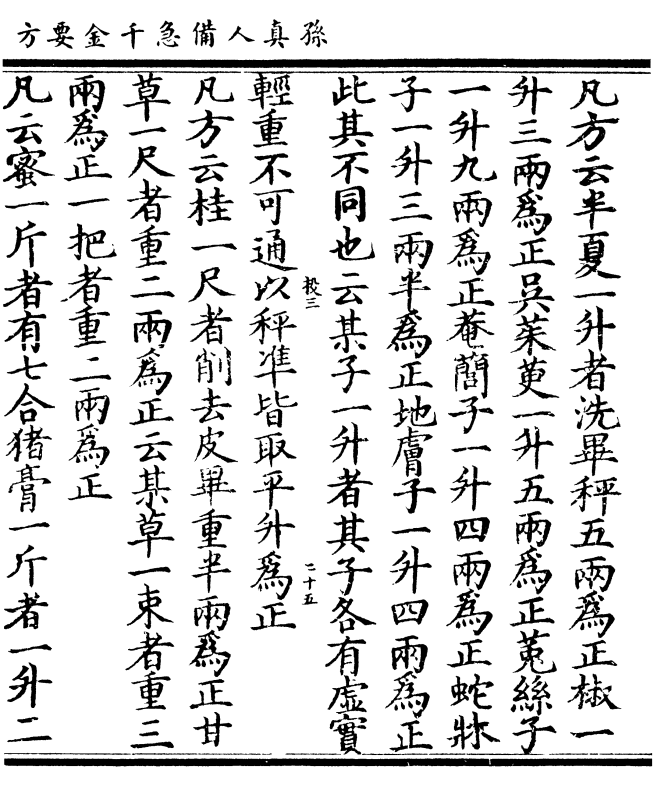 孫真人備急千金要方
凡方云半夏一升者洗畢秤五兩爲正椒一
升三兩爲正吳茱萸一升五兩爲正菟絲子
一升九兩爲正菴䕡子一升四兩爲正蛇牀
子一升三兩半爲正地膚子一升四兩爲正
此其不同也云某子一升者其子各有虛實
輕重不可通以秤准皆取平升爲正
投三
二十五
凡方云桂一尺者削去皮畢重半兩爲正甘
草一尺者重二兩爲正云某草一束者重三
兩爲正一把者重二兩爲正
凡云蜜一斤者有七合猪膏一斤者一升二